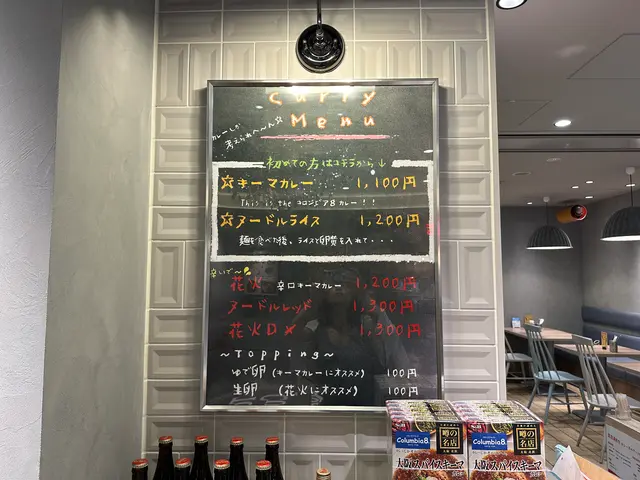 Curry
Menu
カレーしか
考えられへ〜ん☆
初めての方はコチラから↓
☆キーマカレー 1,100円
This is the コロンビア8 カレー!!
☆ヌードルライス 1,200円
麺を食べた後、ライスと卵黄を入れて・・・
辛いで〜
花火 辛口キーマカレー 1,200円
ヌードルレッド 1,300円
花火ロメ 1,300円
〜Topping〜
ゆで卵 (キーマカレーにオススメ) 100円
生卵 (花火にオススメ) 100円
Columbia8
噂の名店
大阪スパイスキーマ
Columbia8
噂の名店
大阪スパイスキーマ